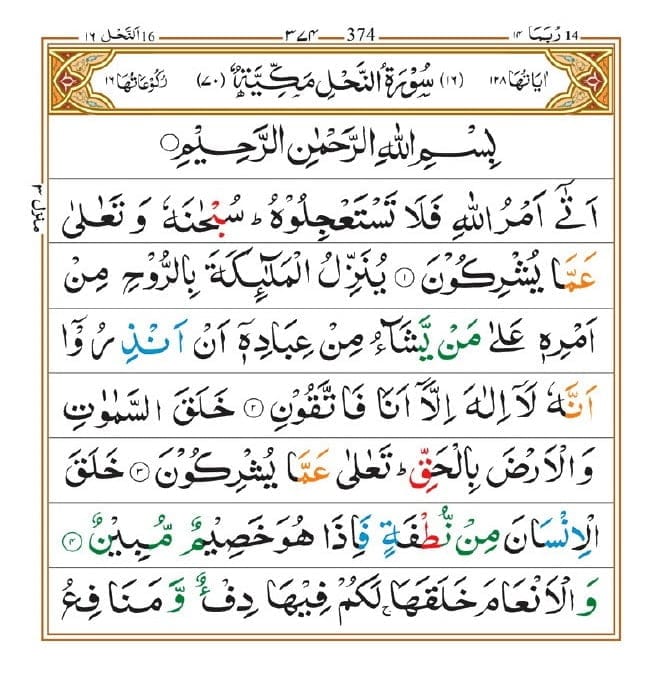 14 رُبَمَا ۱۴ 374 ۳۷۴ 16 اَلنَّحْل ۱۶
اٰيَاتُهَا ۱۲۸ (۱۶) سُوْرَةُ النَّحْلِ مَكِّيَّةٌ (۷۰) رُكُوْعَاتُهَا ۱۶
بِسْمِ اللّٰهِ الرَّحْمٰنِ الرَّحِيْمِ ۝
منزل ۳
اَتٰۤى اَمْرُ اللّٰهِ فَلَا تَسْتَعْجِلُوْهُ ؕ سُبْحٰنَهٗ وَ تَعٰلٰى
عَمَّا يُشْرِكُوْنَ ۝۱ يُنَزِّلُ الْمَلٰٓئِكَةَ بِالرُّوْحِ مِنْ
اَمْرِهٖ عَلٰى مَنْ يَّشَآءُ مِنْ عِبَادِهٖۤ اَنْ اَنْذِرُوْۤا
اَنَّهٗ لَاۤ اِلٰهَ اِلَّاۤ اَنَا فَاتَّقُوْنِ ۝۲ خَلَقَ السَّمٰوٰتِ
وَالْاَرْضَ بِالْحَقِّ ؕ تَعٰلٰى عَمَّا يُشْرِكُوْنَ ۝۳ خَلَقَ
الْاِنْسَانَ مِنْ نُّطْفَةٍ فَاِذَا هُوَ خَصِيْمٌ مُّبِيْنٌ ۝۴
وَالْاَنْعَامَ خَلَقَهَا ۚ لَكُمْ فِيْهَا دِفْءٌ وَّ مَنَافِعُ